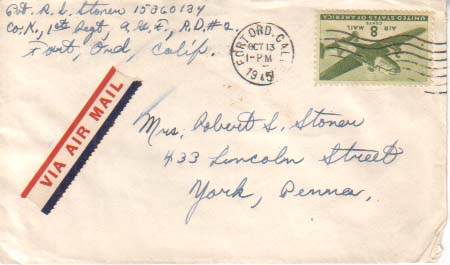 Pvt. R. S. Stoner 15860134
Co. K, 1st Regt, A.G.F., R.D. #2.
Fort, Ord, Calif.
FORT ORD, CALIF.
OCT 13
1-PM
1945
UNITED STATES OF AMERICA
AIR MAIL
8
CENTS
VIA AIR MAIL
Mrs. Robert S. Stoner
433 Lincoln Street
York, Penna.